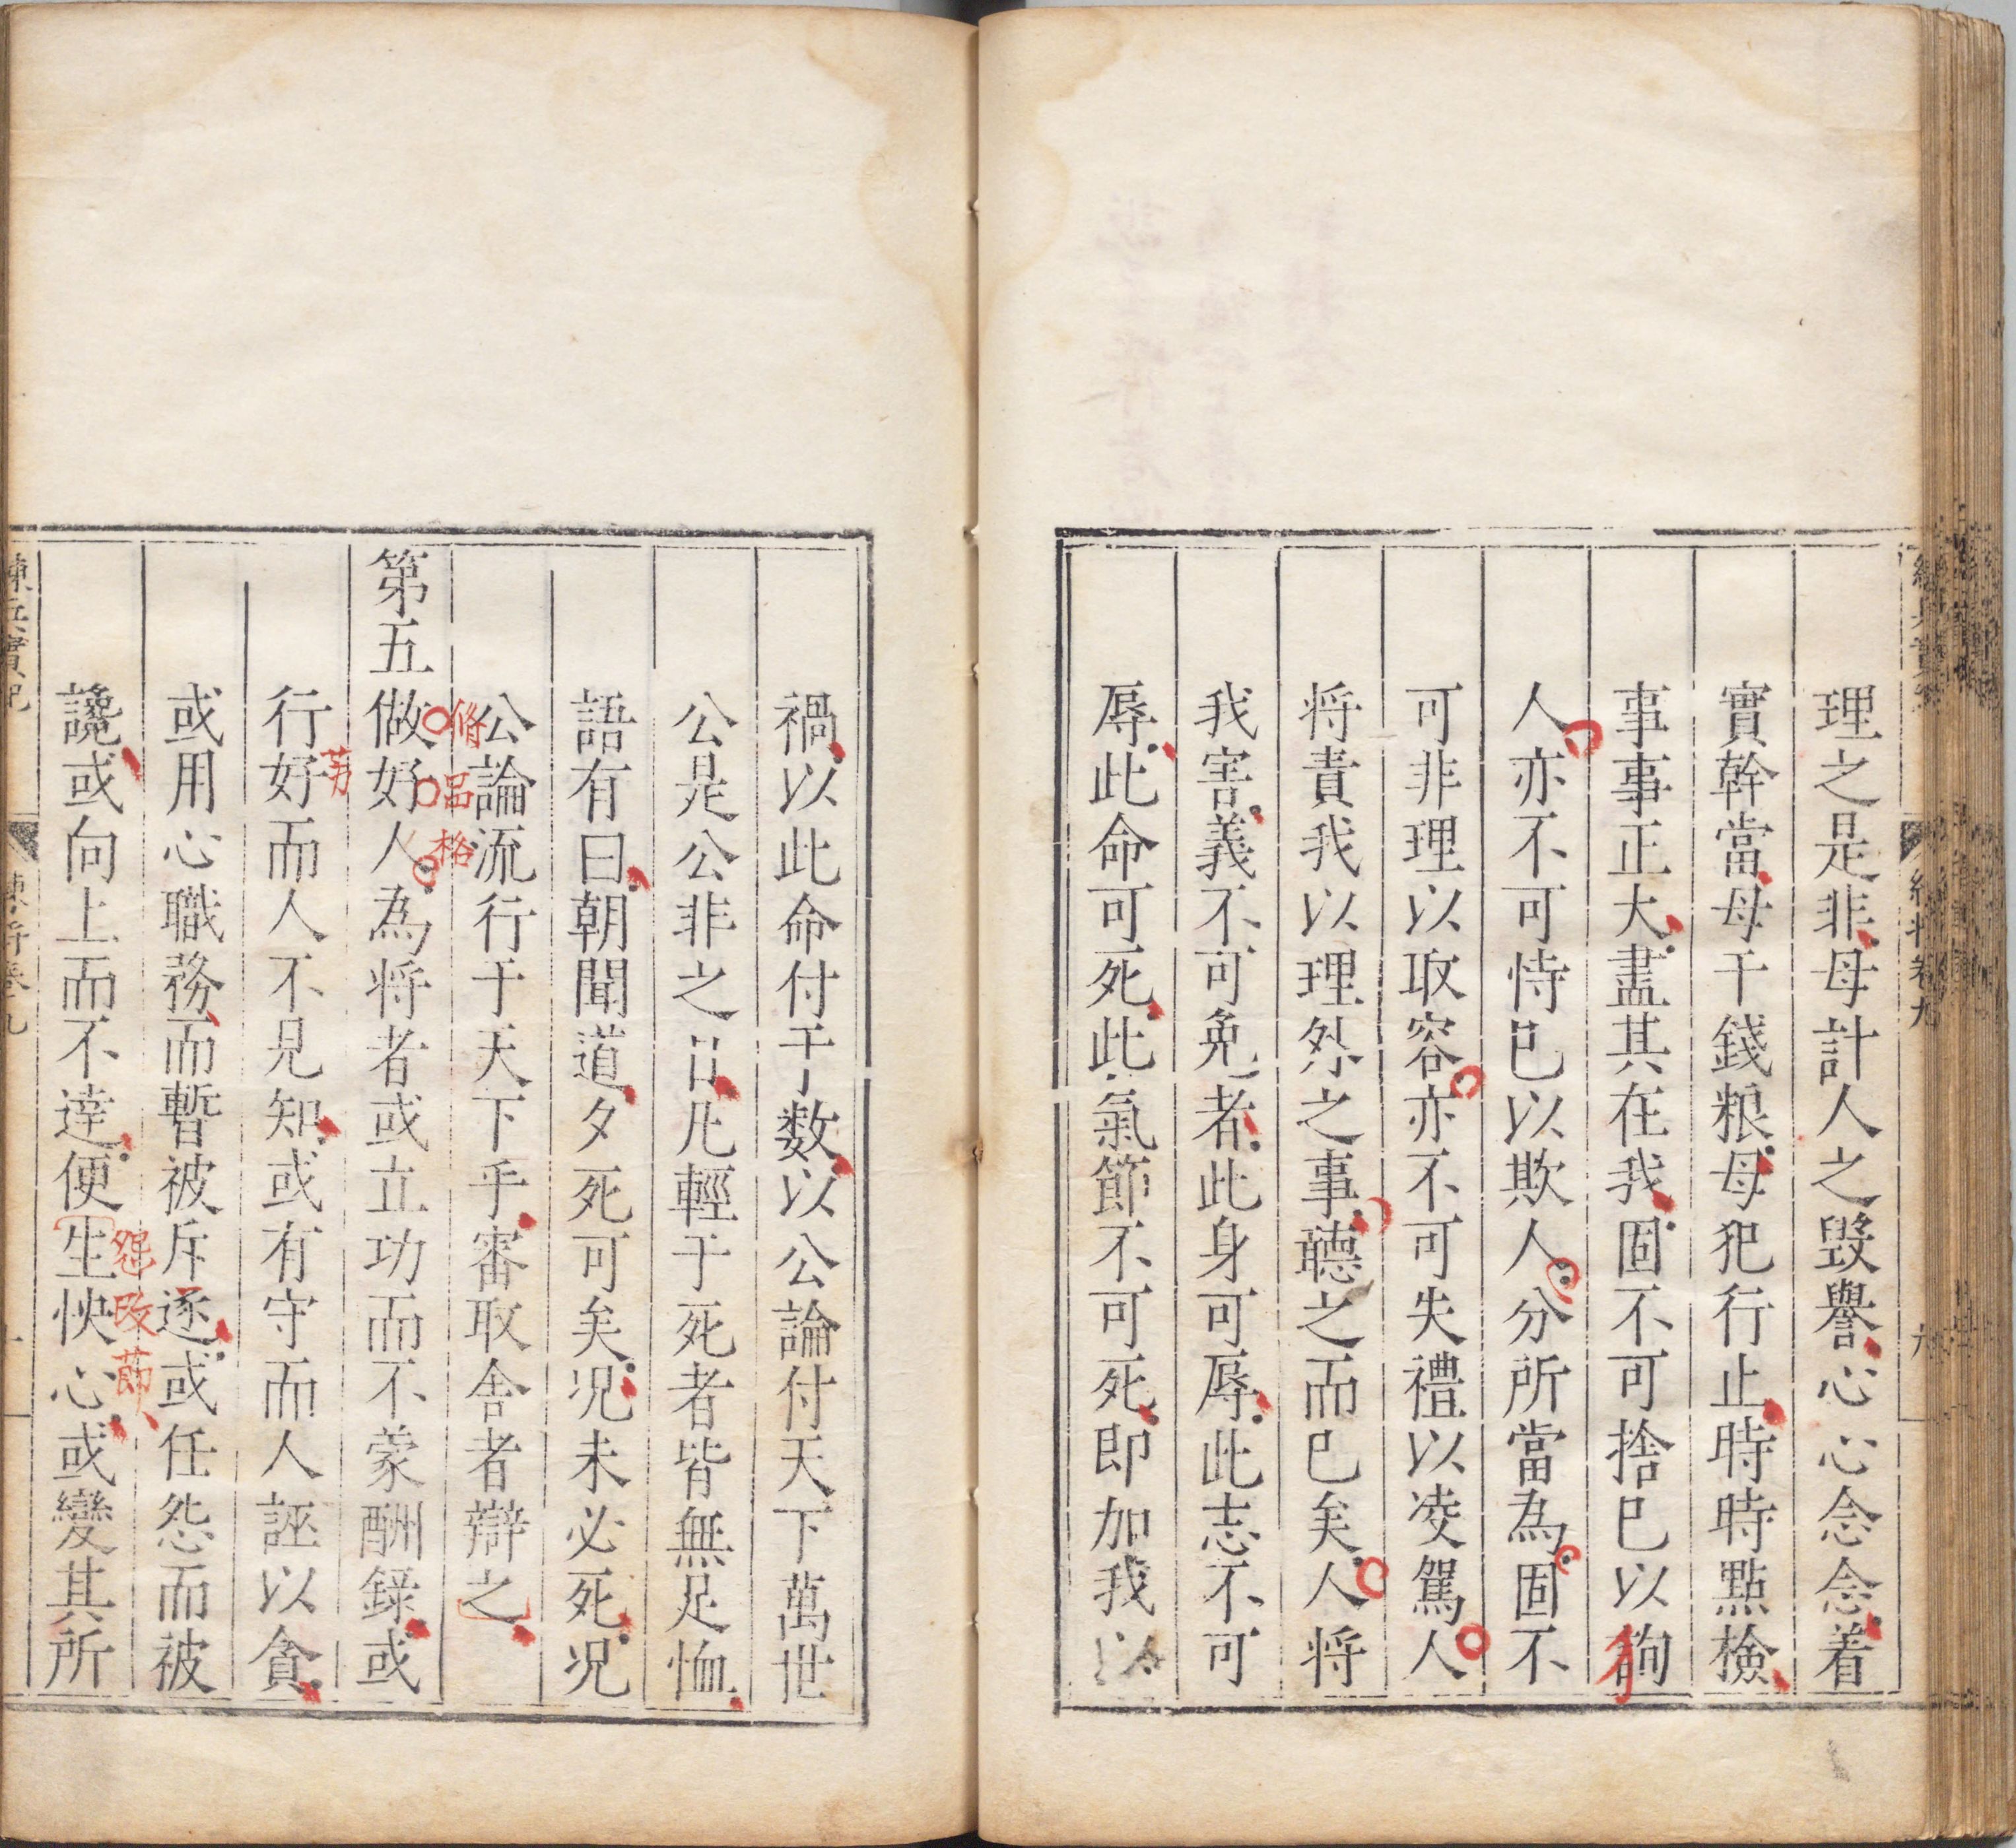 理之是非毋計人之毀譽心心念念着
實幹當毋干錢粮毋犯行止時時點檢
事事正大盡其在我固不可捨己以詢
人亦不可恃己以欺人分所當為固不
可非理以取容亦不可失禮以凌駕人
将責我以理外之事聽之而已矣人将
我害義不可免者此身可辱此志不可
辱此命可死此氣節不可死即加我以
禍以此命付于数以公論付天下萬世
公是公非之口凡輕于死者皆無足恤
語有曰朝聞道夕死可矣况未必死况
公論流行于天下乎審取舍者辯之
脩品格
第五做好人為将者或立功而不蒙酬録或
行好而人不見知或有守而人誣以貪
或用心職務而暫被斥逐或任怨而被
怨改節
讒或向上而不達便生怏心或變其所
練兵實紀 練将卷九